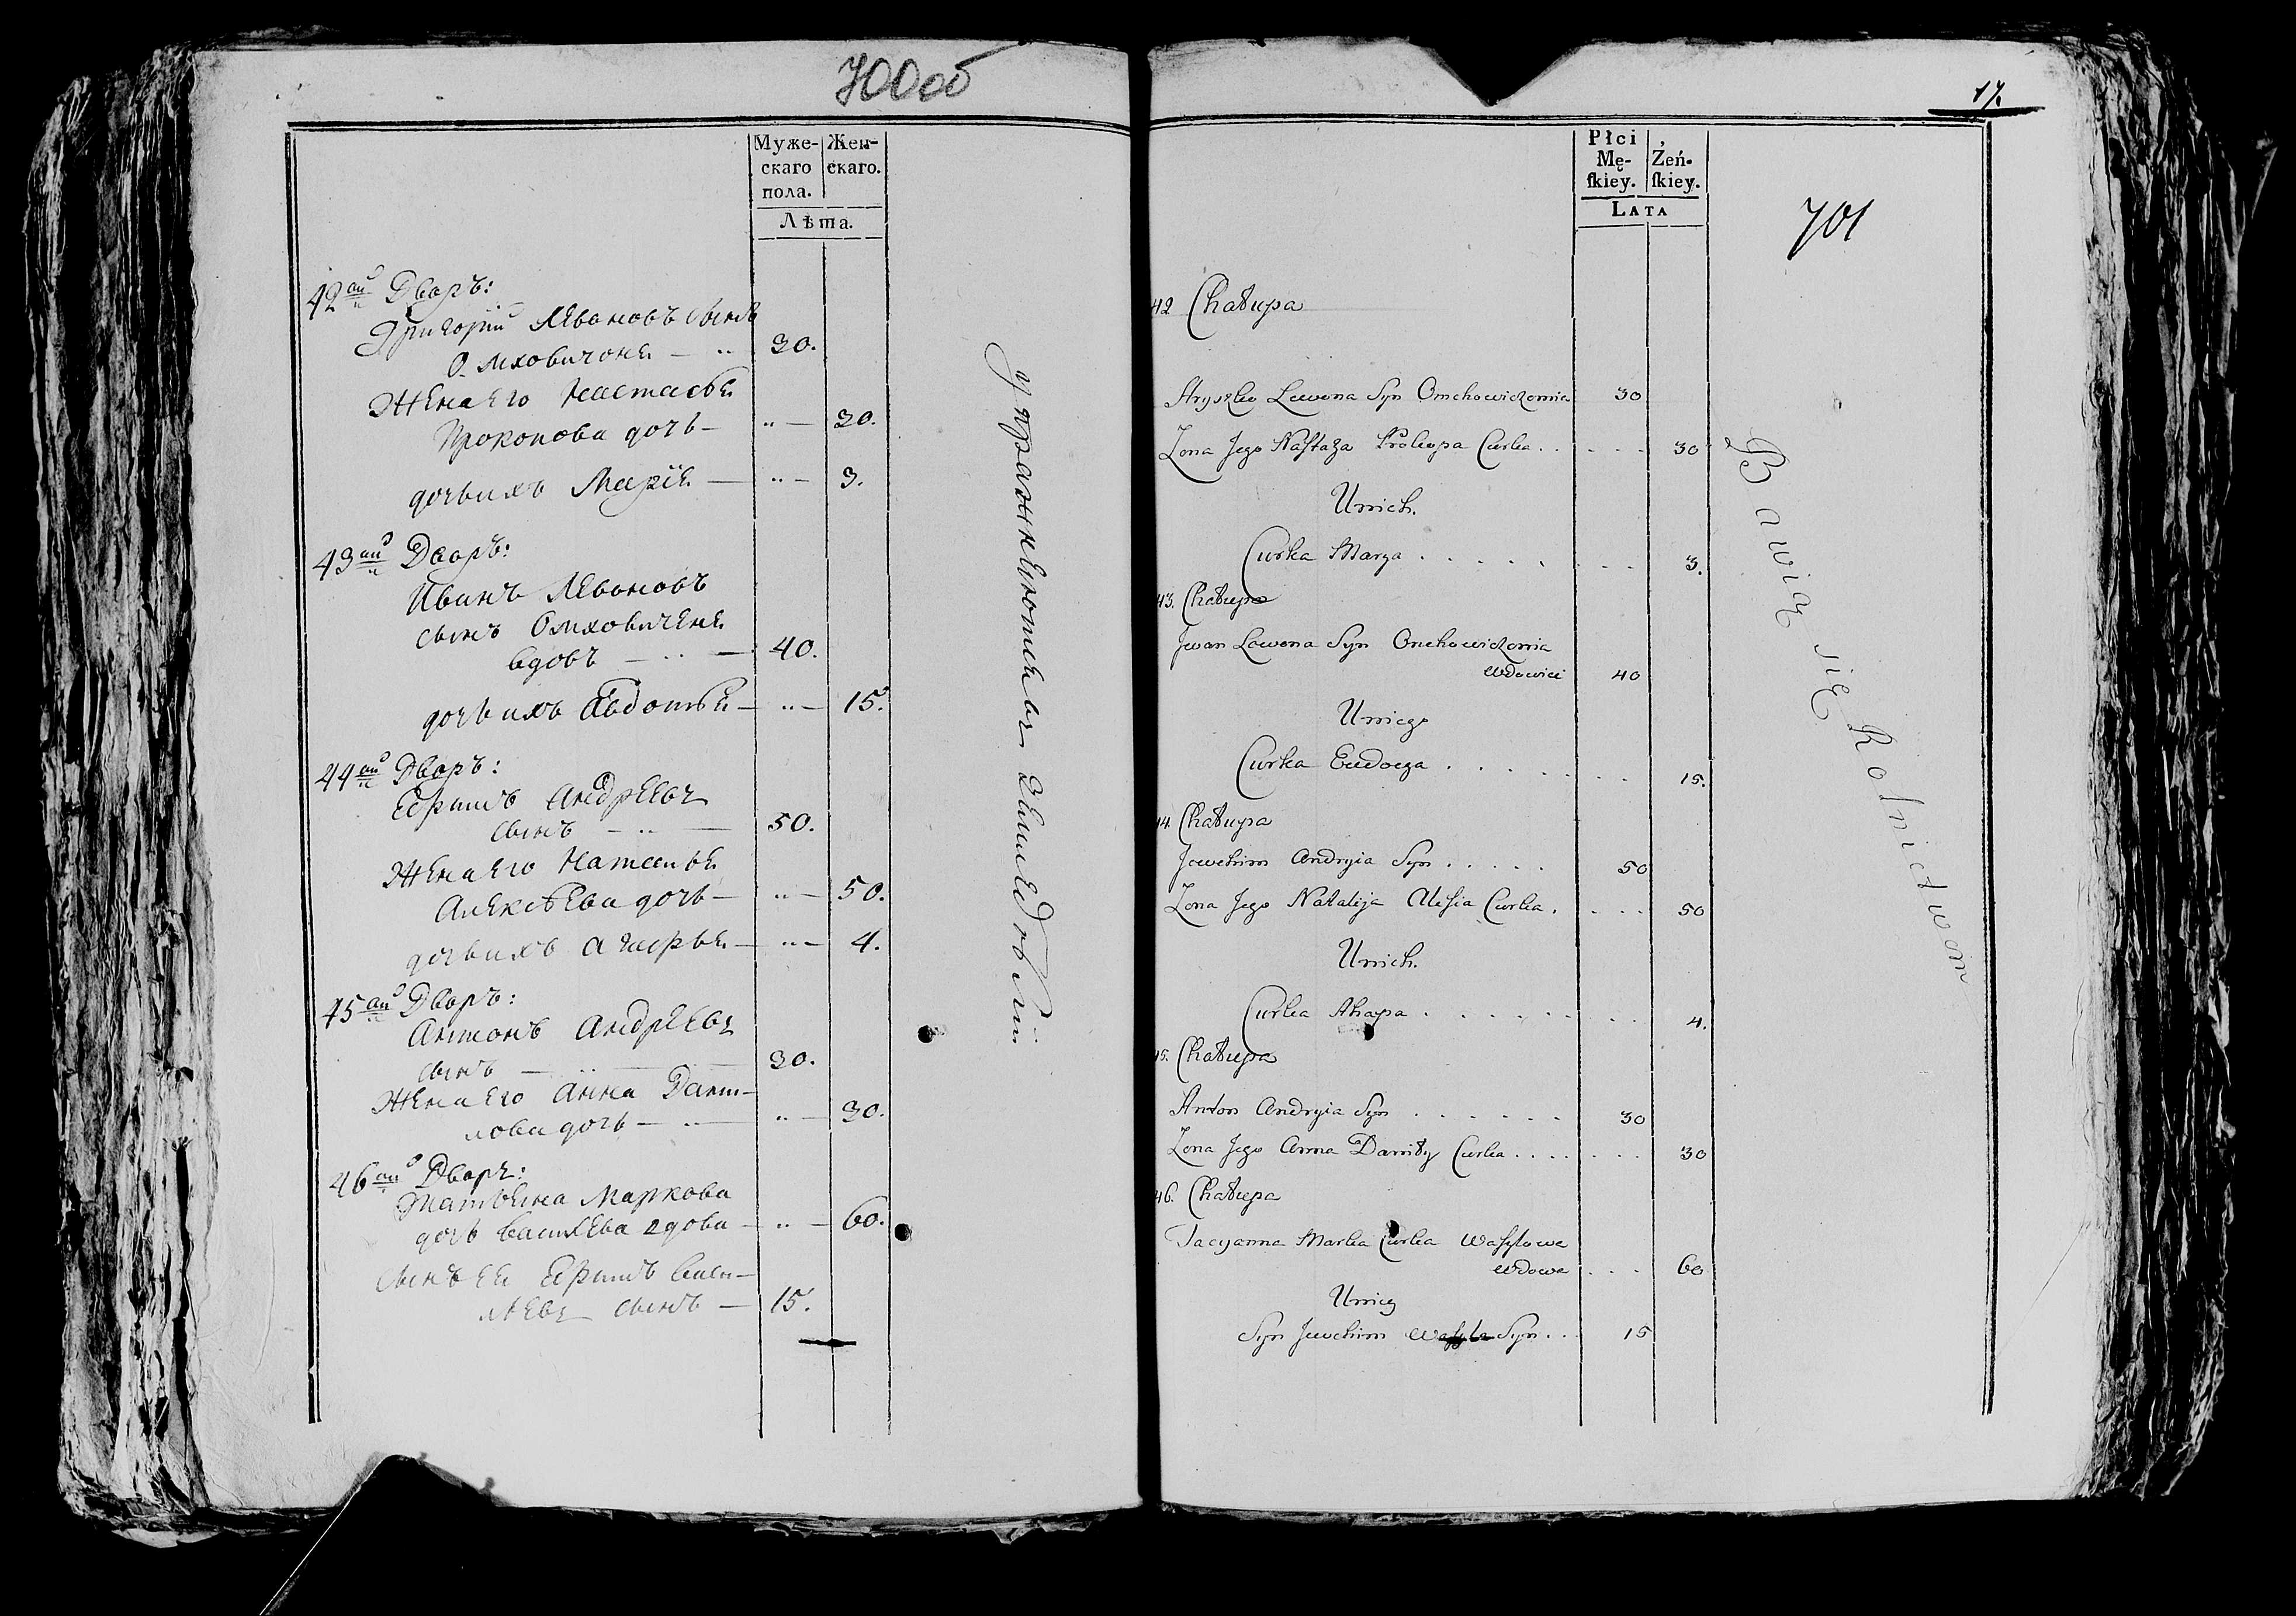 700об
Муже-
скаго
пола.
Жен-
скаго.
Лѣта.
42ий Дворъ:
Григорій Левоновъ сынъ
Омховичоня — 30.
Жена его Настасья
Прокопова дочь — 30.
дочь ихъ Марія — 3.
43ий Дворъ:
Иванъ Левоновъ
сынъ Омховиченя
вдовъ — 40.
дочь ихъ Авдотья — 15.
44ий Дворъ:
Ефимъ Андреевъ
сынъ — 50.
Жена его Наталья
Алексѣева дочь — 50.
дочь ихъ Агафья — 4.
45ий Дворъ:
Антонъ Андреевъ
сынъ — 30.
Жена его Анна Дани-
лова дочь — 30.
46ий Дворъ:
Татьяна Маркова
дочь Василева вдова — 60.
сынъ ея Ефимъ Васи-
льевъ сынъ — 15.
упражняются въ земледѣлiи
17.
Płci
Mę-
skiey.
Żeń-
skiey.
LATA
701
42 Chałupa
Hryszko Lewona Syn Omchowiczenia 30
Żona Jego Nastazya Prokopa Curka . . 30
U nich.
Curka Marya . . . . . 3.
43. Chałupa
Jwan Lewona Syn Omchowiczenia
wdowiec 40
U niego
Curka Eudocya . . . . . 15.
44. Chałupa
Jewchim Andryia Syn . . . . . 50
Żona Jego Natalija Alesia Curka . . . . 50
U nich.
Curka Ahapa . . . . . . 4.
45. Chałupa
Anton Andryia Syn . . . . . . 30
Żona Jego Anna Daniły Curka . . . . 30
46. Chałupa
Tacyanna Marka Curka Wasylowa
wdowa . . . 60
U niey
Syn Jewchim Wasyla Syn . . 15
Bawią się Rolnictwem